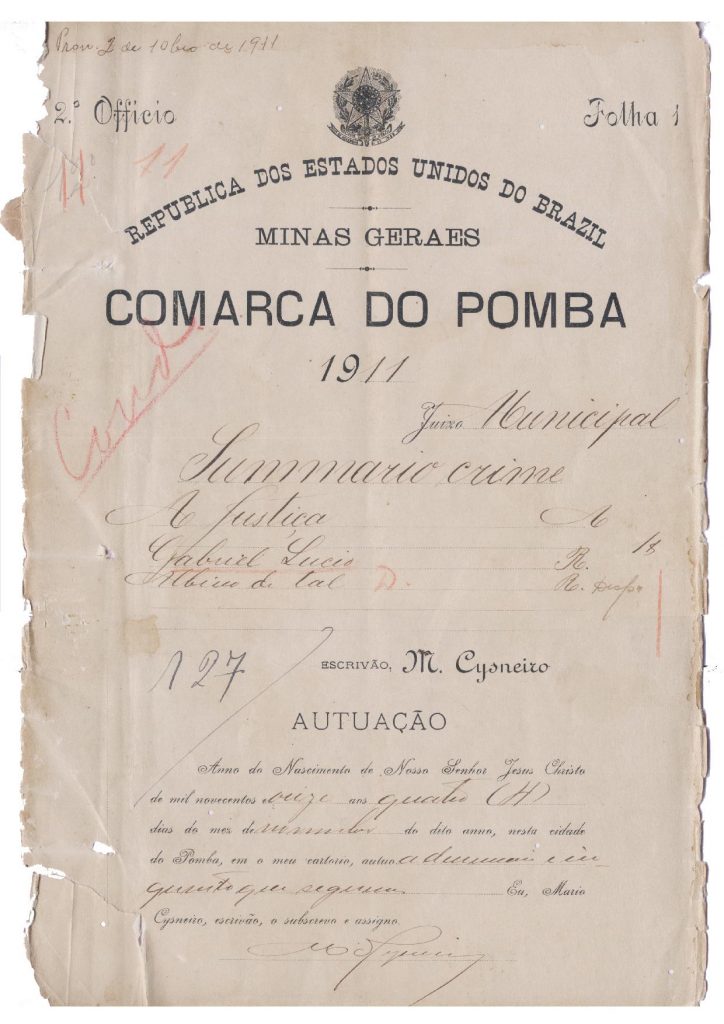 Pron. 2 de 10bro de 1911
2.º Officio
Folha 1
11
REPUBLICA DOS ESTADOS UNIDOS DO BRAZIL
MINAS GERAES
COMARCA DO POMBA
1911
Cond
Juizo Municipal
Summario crime
A Justiça A
18
Gabriel Lucio R.
Albino de tal D. R.
127
ESCRIVÃO, M. Cysneiro
AUTUAÇÃO
Anno do Nascimento de Nosso Senhor Jesus Christo
de mil novecentos e onze aos quatro (4)
dias do mez de do dito anno, nesta cidade
do Pomba, em o meu cartorio, autuo a denuncia e in-
querito que seguem Eu, Mario
Cysneiro, escrivão, o subscrevo e assigno.
M Cysneiro